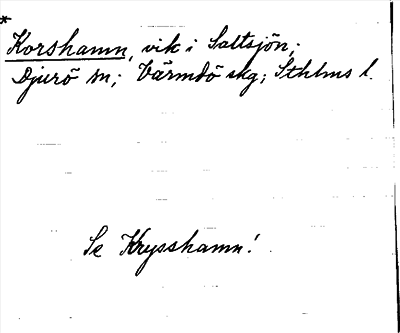 *
Korshamn, vik i Saltsjön;
Djurö sn; Värmdö skg; Sthlms l.
Se Krysshamn!